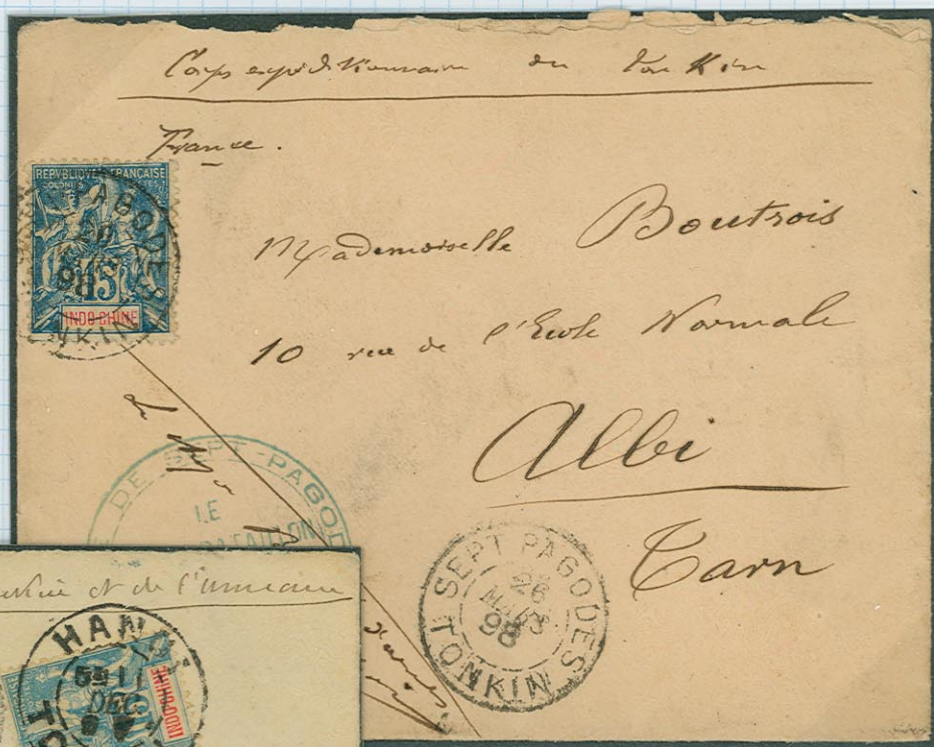 Corps expéditionnaire du Tonkin
France.
REPVBLIQVE FRANÇAISE
COLONIES
15
INDO-CHINE
PAGODES
98
Mademoiselle Boutrois
10 rue de l'Ecole Normale
Albi
Tarn
de Mr
DE SEPT-PAGOD
LE
SEPT PAGODES
26
MARS
98
TONKIN
et de l'Annam
HANOI
11
DEC
INDO-CHINE